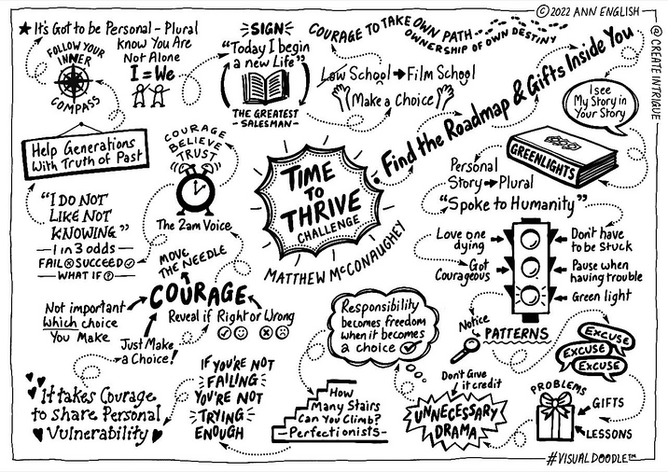 ©2022 ANN ENGLISH
@CREATE INTRIGUE
★It's Got to be Personal - Plural
know You Are
Not Alone
I=We
FOLLOW YOUR
INNER
COMPASS
SIGN
"Today I begin
a new Life"
THE GREATEST
-SALESMAN-
COURAGE TO TAKE OWN PATH
OWNERSHIP OF OWN DESTINY
Low School → Film School
Make a Choice!
Find the Roadmap & Gifts Inside You
I see
My Story in
Your Story
GREENLIGHTS
Personal
Story → Plural
"Spoke to Humanity"
Help Generations
With Truth of Past
COURAGE
BELIEVE
TRUST
The 2am Voice
TIME
TO
THRIVE
CHALLENGE
MATTHEW McCONAUGHEY
"I DO NOT
LIKE NOT
KNOWING"
1 in 3 odds
FAIL SUCCEED
WHAT IF?
MOVE
THE NEEDLE
COURAGE
Not important
Which choice
You Make
Just Make
a Choice!
Reveal if Right or Wrong
Love one
dying
Got
Courageous
Don't have
to be Stuck
Pause when
having trouble
Green light
Responsibility
becomes freedom
when it becomes
a choice
Notice
PATTERNS
EXCUSE
EXCUSE
EXCUSE
Don't Give
it credit
UNNECESSARY
DRAMA
PROBLEMS
GIFTS
LESSONS
It takes Courage
to share Personal
Vulnerability
IF YOU'RE NOT
FAILING
YOU'RE NOT
TRYING
ENOUGH
How
Many Stairs
Can You Climb?
-Perfectionists-
#VISUALDOODLE™